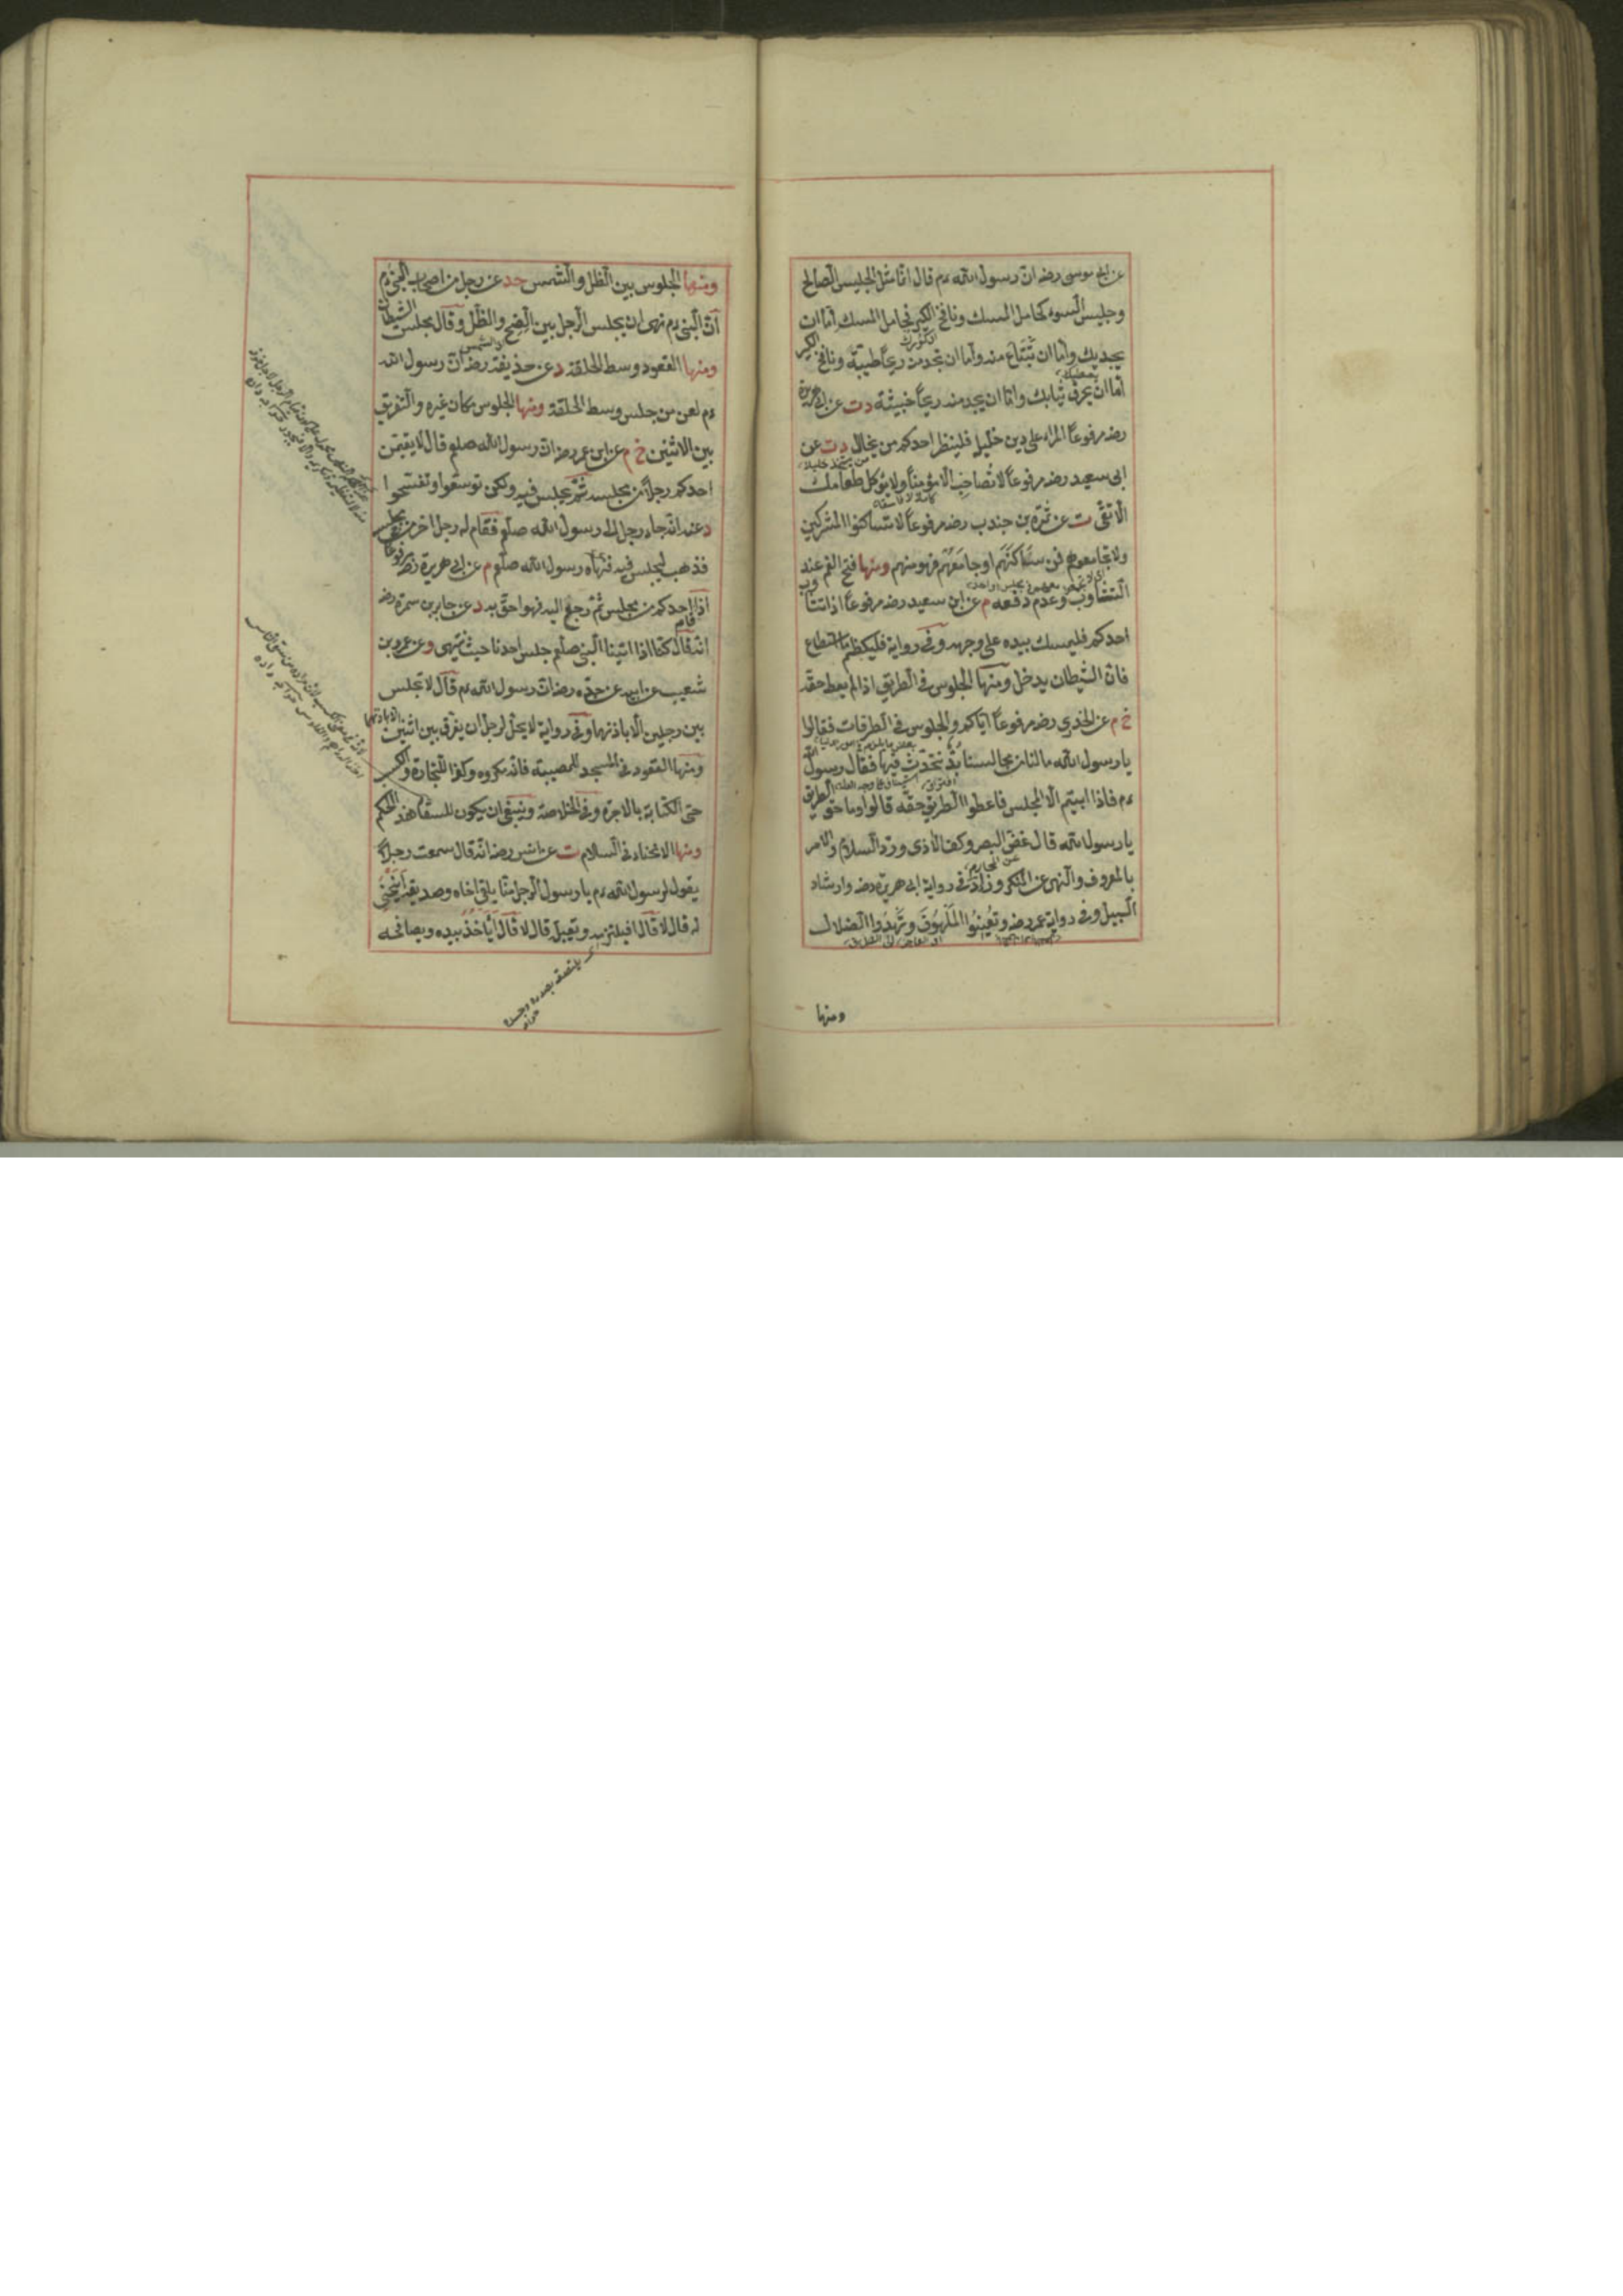 عن ابى موسى رضه ان رسول الله عم قال انما مثل الجليس الصالح
وجليس السوء كحامل المسك ونافخ الكير فحامل المسك اما ان
يجديك واما ان تبتاع منه واما ان تجد منه ريحا طيبة ونافخ الكير
اما ان يحرق ثيابك واما ان يجد منه ريحا خبيثة دت عن ابى هريرة
رضه مرفوعا المرء على دين خليل فلينظر احدكم من يخال دت عن
ابى سعيد رضه مرفوعا لا تصاحب الا مؤمنا ولا يؤكل طعامك
الا تقى ت عن سمرة بن جندب رضه مرفوعا لا تساكنوا المشركين
ولا تجامعوهم فمن ساكنهم او جامعهم فهو منهم ومنها فتح الفم عند
التثاوب وعدم دفعه م عن ابى سعيد رضه مرفوعا اذا تثاوب
احدكم فليمسك بيده على وجهه وفى رواية فليكظم ما استطاع
فان الشيطان يدخل ومنها الجلوس فى الطريق اذا لم يعط حقه
خ م عن الخدرى رضه مرفوعا اياكم والجلوس فى الطرقات فقالوا
يا رسول الله مالنا من مجالسنا بد نتحدث فيها فقال رسول الله
عم فاذا ابيتم الا المجلس فاعطوا الطريق حقه قالوا وما حق الطريق
يا رسول الله قال غض البصر وكف الاذى ورد السلام والامر
بالمعروف والنهى عن المنكر وزاد فى رواية ابى هريرة رضه وارشاد
السبيل وفى رواية عمر رضه وتعينوا الملهوف وتهدوا الضلال
ومنها
ومنها الجلوس بين الظل والشمس حد عن رجل من اصحاب النبى عم
ان النبى عم نهى ان يجلس الرجل بين الضح والظل وقال مجلس الشيطان
ومنها القعود وسط الحلقة د عن حذيفة رضه ان رسول الله
عم لعن من جلس وسط الحلقة ومنها الجلوس مكان غيره والتفريق
بين الاثنين خ م عن ابن عمر رضه ان رسول الله صلعم قال لا يقيمن
احدكم رجلا من مجلسه ثم يجلس فيه ولكن توسعوا وتفسحوا
د عنه انه جاء رجل الى رسول الله صلعم فقام له رجل اخر من مجلسه
فذهب ليجلس فيه فنهاه رسول الله صلعم م عن ابى هريرة رضه مرفوعا
اذا قام احدكم من مجلس ثم رجع اليه فهو احق به د عن جابر بن سمرة رضه
انه قال كنا اذا اتينا النبى صلعم جلس احدنا حيث ينتهى وعن عمرو بن
شعيب عن ابيه عن جده رضه ان رسول الله عم قال لا تجلس
بين رجلين الا باذنهما وفى رواية لا يحل لرجل ان يفرق بين اثنين الا باذنهما
ومنها القعود فى المسجد للمصيبة فانه مكروه وكذا للتجارة والكسب
حتى الكتابة بالاجرة وفى الخلاصة وينبغى ان يكون للسقا هذا الحكم
ومنها الانحناء فى السلام ت عن انس رضه انه قال سمعت رجلا
يقول لرسول الله عم يا رسول الله الرجل منا يلقى اخاه وصديقه اينحنى
له قال لا قال افيلتزمه ويقبله قال لا قال اياخذ بيده ويصافحه